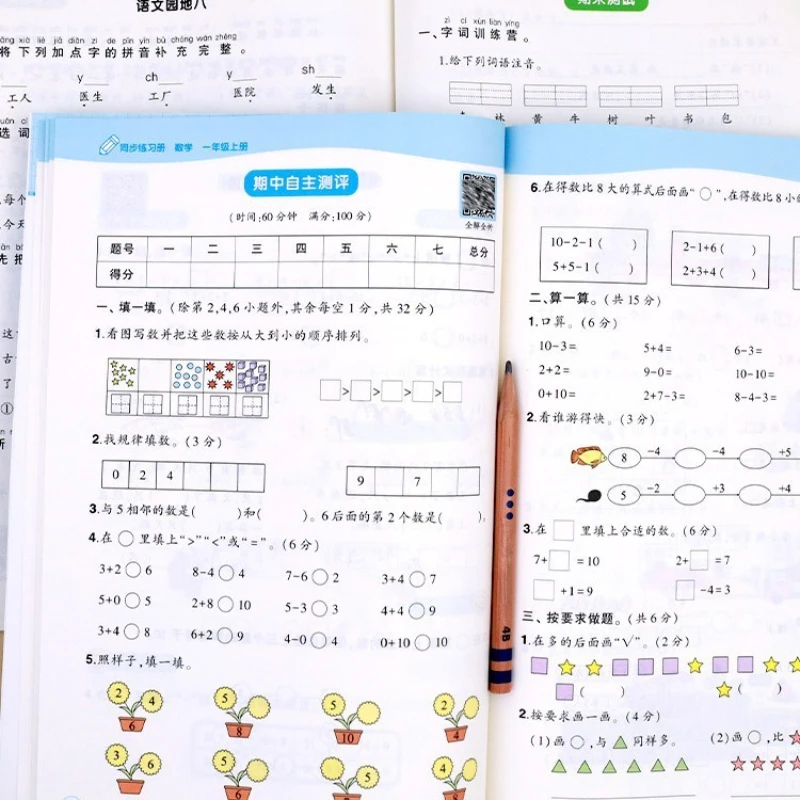 语文园地八
将下列加点字的拼音补充完整。
y
ch
y
sh
工人
医生
工厂
医院
发生
期末测试
zì cí xùn liàn yíng
一、字词训练营。
1.给下列词语注音。
林 黄 牛 树 叶 书 包
同步练习册 数学 一年级上册
期中自主测评
(时间:60分钟 满分:100分)
全解全析
题号 一 二 三 四 五 六 七 总分
得分
一、填一填。(除第2,4,6小题外,其余每空1分,共32分)
1.看图写数并把这些数按从大到小的顺序排列。
□>□>□>□>□
2.找规律填数。(3分)
0 2 4
9 7
3.与5相邻的数是( )和( )。6后面的第2个数是( )。
4.在○里填上“>”“<”或“=”。(6分)
3+2○6 8-4○4 7-6○2 3+4○7
5+0○5 2+8○10 5-3○3 4+4○9
3+4○8 6+2○9 4-0○4 0+10○10
5.照样子,填一填。
2 4 6
5 8
5 10
2 4
3 6
5 6
5
4 8
4B
6.在得数比8大的算式后面画“○”,在得数比8小的
10-2-1( )
5+5-1( )
2-1+6( )
2+3+4( )
二、算一算。(共15分)
1.口算。(6分)
10-3= 5+4= 6-3=
2+2= 9-0= 10-10=
0+10= 2+7-3= 8-4-3=
2.看谁游得快。(3分)
8 -4 -4 +5
5 -2 +3 +4
3.在□里填上合适的数。(6分)
7+□=10 2+□=7
□+1=9 □-4=3
三、按要求做题。(共6分)
1.在多的后面画“√”。(2分)
□( ) ☆( )
2.按要求画一画。(4分)
(1)画○,与△同样多。 (2)画○,比